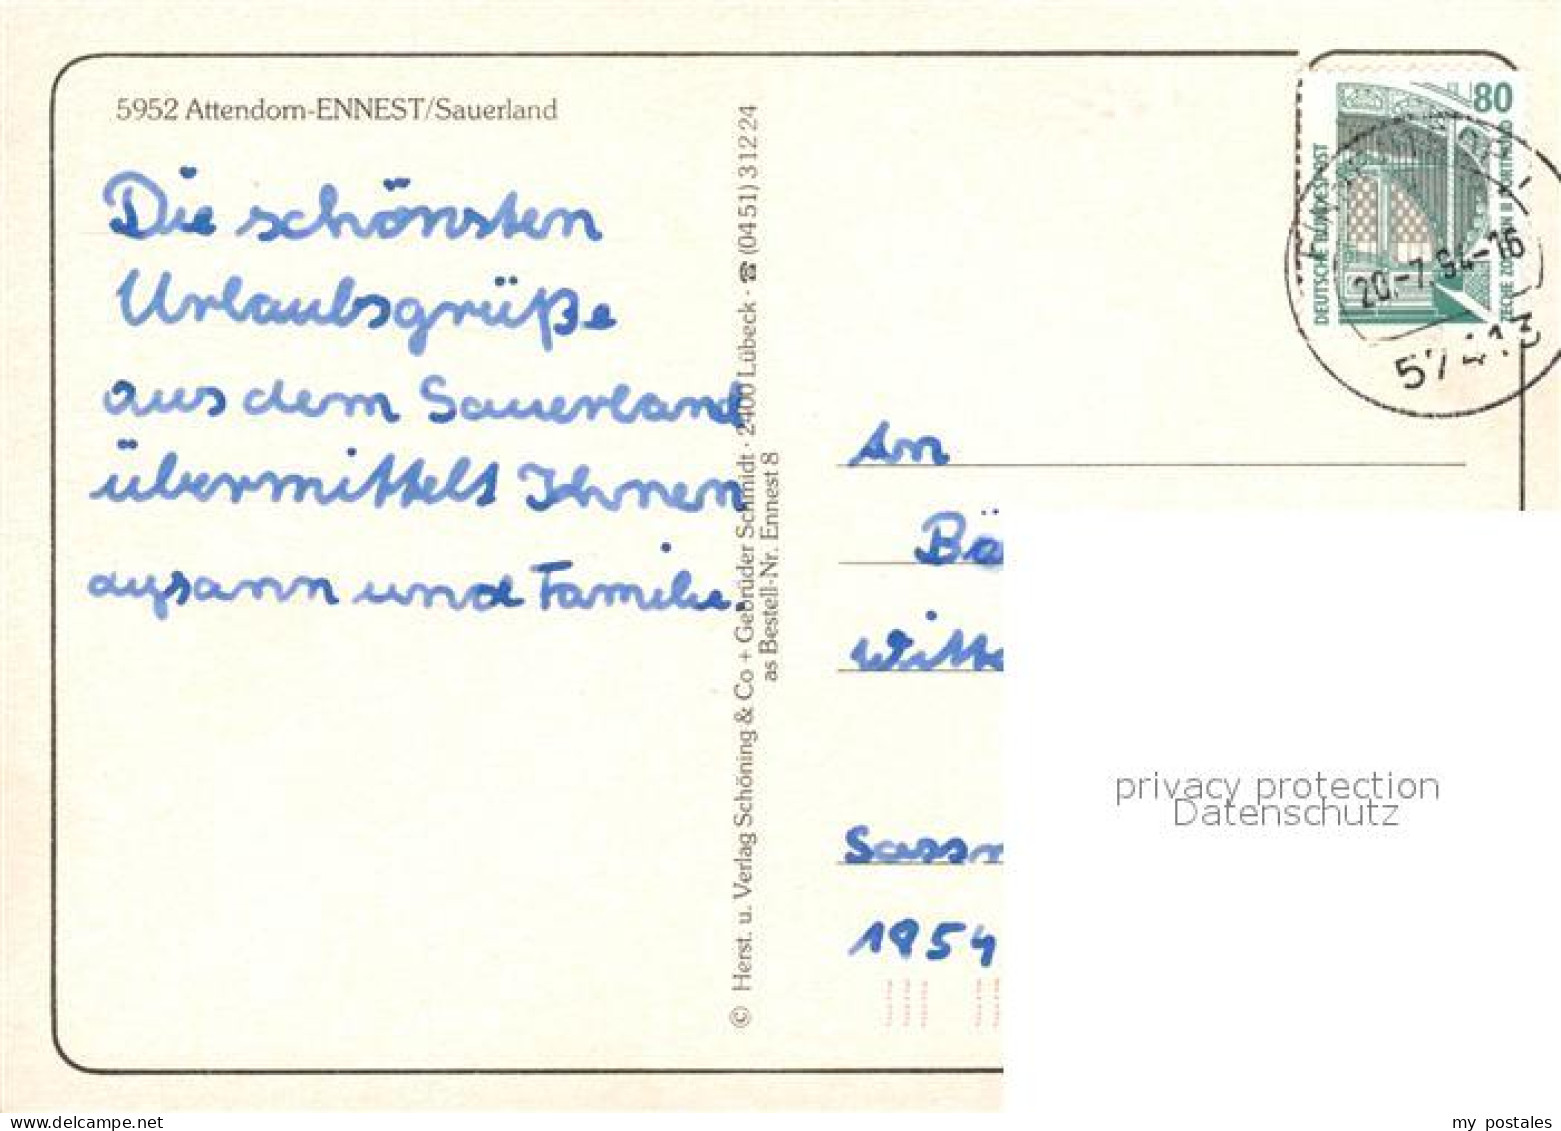 5952 Attendorn-ENNEST/Sauerland
Die schönsten
Urlaubsgrüße
aus dem Sauerland
übermittelt Ihnen
und Familie.
© Herst. u. Verlag Schöning & Co + Gebrüder Schmidt · 2400 Lübeck · ☎ (04 51) 3 12 24
as Bestell-Nr. Ennest 8
80
DEUTSCHE BUNDESPOST
ZECHE ZOLLERN II DORTMUND
20.-7.94-16
57413
An
Bä
Witte
Sassn
privacy protection
Datenschutz
www.delcampe.net
my_postales